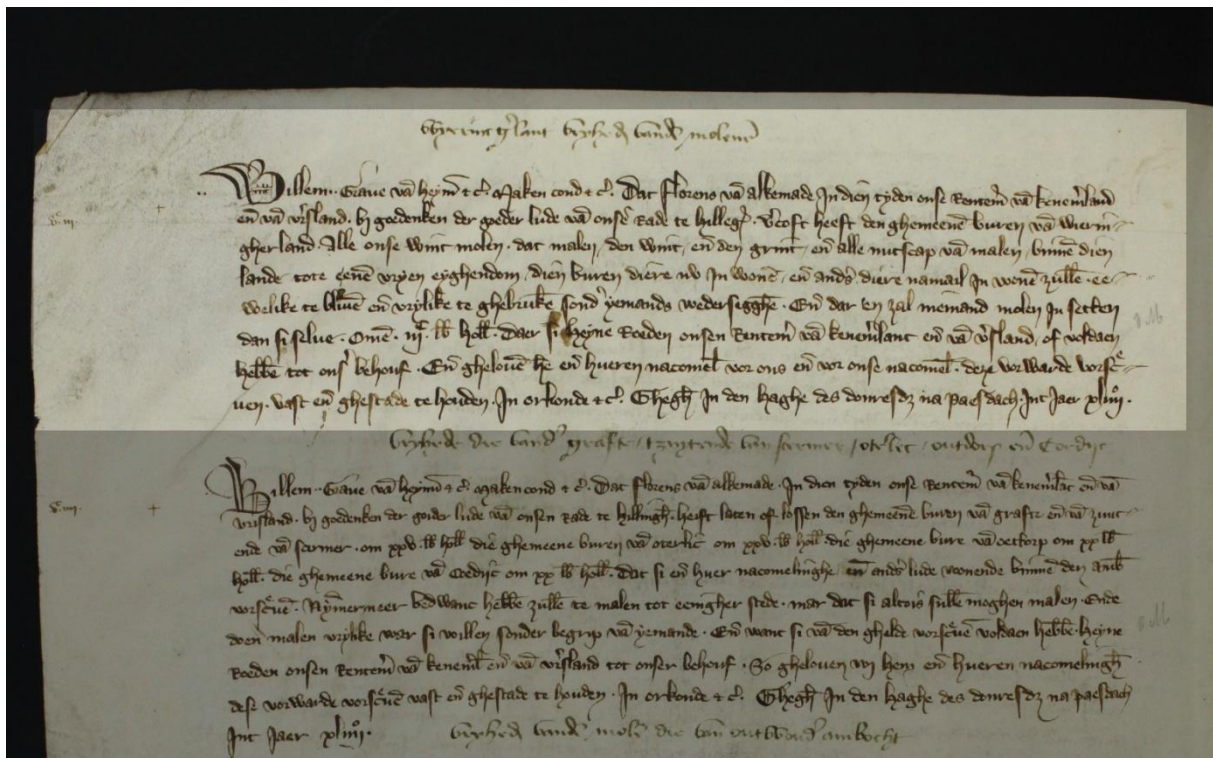 Wieringherlant vryhed vander molen
Willem. Graue vā heyn̄ ⁊ c̄. Maken cond ⁊ c̄. Dat florens vā alkemade In dien tyden onse Rentem̄ vā kenem̄land
en̄ vā vrīsland. bi goedenken der goeder lude vā onsē Rade te hilleḡ. Vcoft heeft den ghemeenē buren vā wierin
gherland. Alle onse wint molen. dat malen, den wint, en̄ den grint, en̄ alle nutscap vā malen, binnē dien
lande tote eenē vryen eyghendom, dien buren diere nv In wonē, en̄ anders diere namaels In wonē zullē. ee
welike te bliuē en̄ vrylike te ghebrukē sonder yemands wedersigghē. En̄ dar en zal niemand molen In setten
dan si selue. Omē. iijc. lb holl. Daer si heyne Roeden onsen Rentem̄ vā kenem̄lant en̄ vā vrīsland, of voldaen
hebbē tot ons̄ behouf. En̄ ghelouē he en̄ hueren nacomel̄ vor ons en̄ vor onse nacomel̄. dese vorwarde vorscre
uen. vast en̄ ghestade te houden. In orkonde ⁊ c̄. Ghegh̄ In den haghe des donresd̄ na paesdach. Int Jaer xliiijo.
vryhede die vander grafte, tzuytende van scermer, oterlic, outdorp en̄ Coedijc
Willem. Graue vā heyn̄ ⁊ c̄. Maken cond ⁊ c̄. Dat florens vā alkemade. In dien tyden onse Rentem̄ vā kenem̄lāt en̄ vā
vriesland. bi goedenken der goider lude vā onsen Rade te hillingh̄. heift laten of lossen den ghemeenē buren vā graft en̄ vā zuut
ende vā scermer. om xxv. lb holl die ghemeene buren vā oterlic om xxv. lb holl. die ghemeene bure vā oettorp om xx lb
holl. die ghemeene bure vā Coedijc om xx lb holl. Dat si en̄ huer nacomelinghe en̄ anders lude wonende binnē den amb̄
vorscreuē. Nymermeer bedwanc hebbē zullē te malen tot eenigher stede. mar dat si altois sullē moghen malen. Ende
doen malen vrylike waer si willen sonder begrip vā yemande. En̄ want si vā den ghelde vorscreuē voldaen hebbē. heyne
Roeden onsen Rentem̄ vā kenem̄l̄ en̄ vā vrīsland tot onser behouf. So ghelouen wi hem en̄ hueren nacomelingh̄
dese vorwarde vorscreuē vast en̄ ghestade te houden. In orkonde ⁊ c̄. Ghegh̄ In den haghe des donresd̄ na paesdach
Int Jaer xliiijo.
vryhed vander molē die van outdorper ambocht